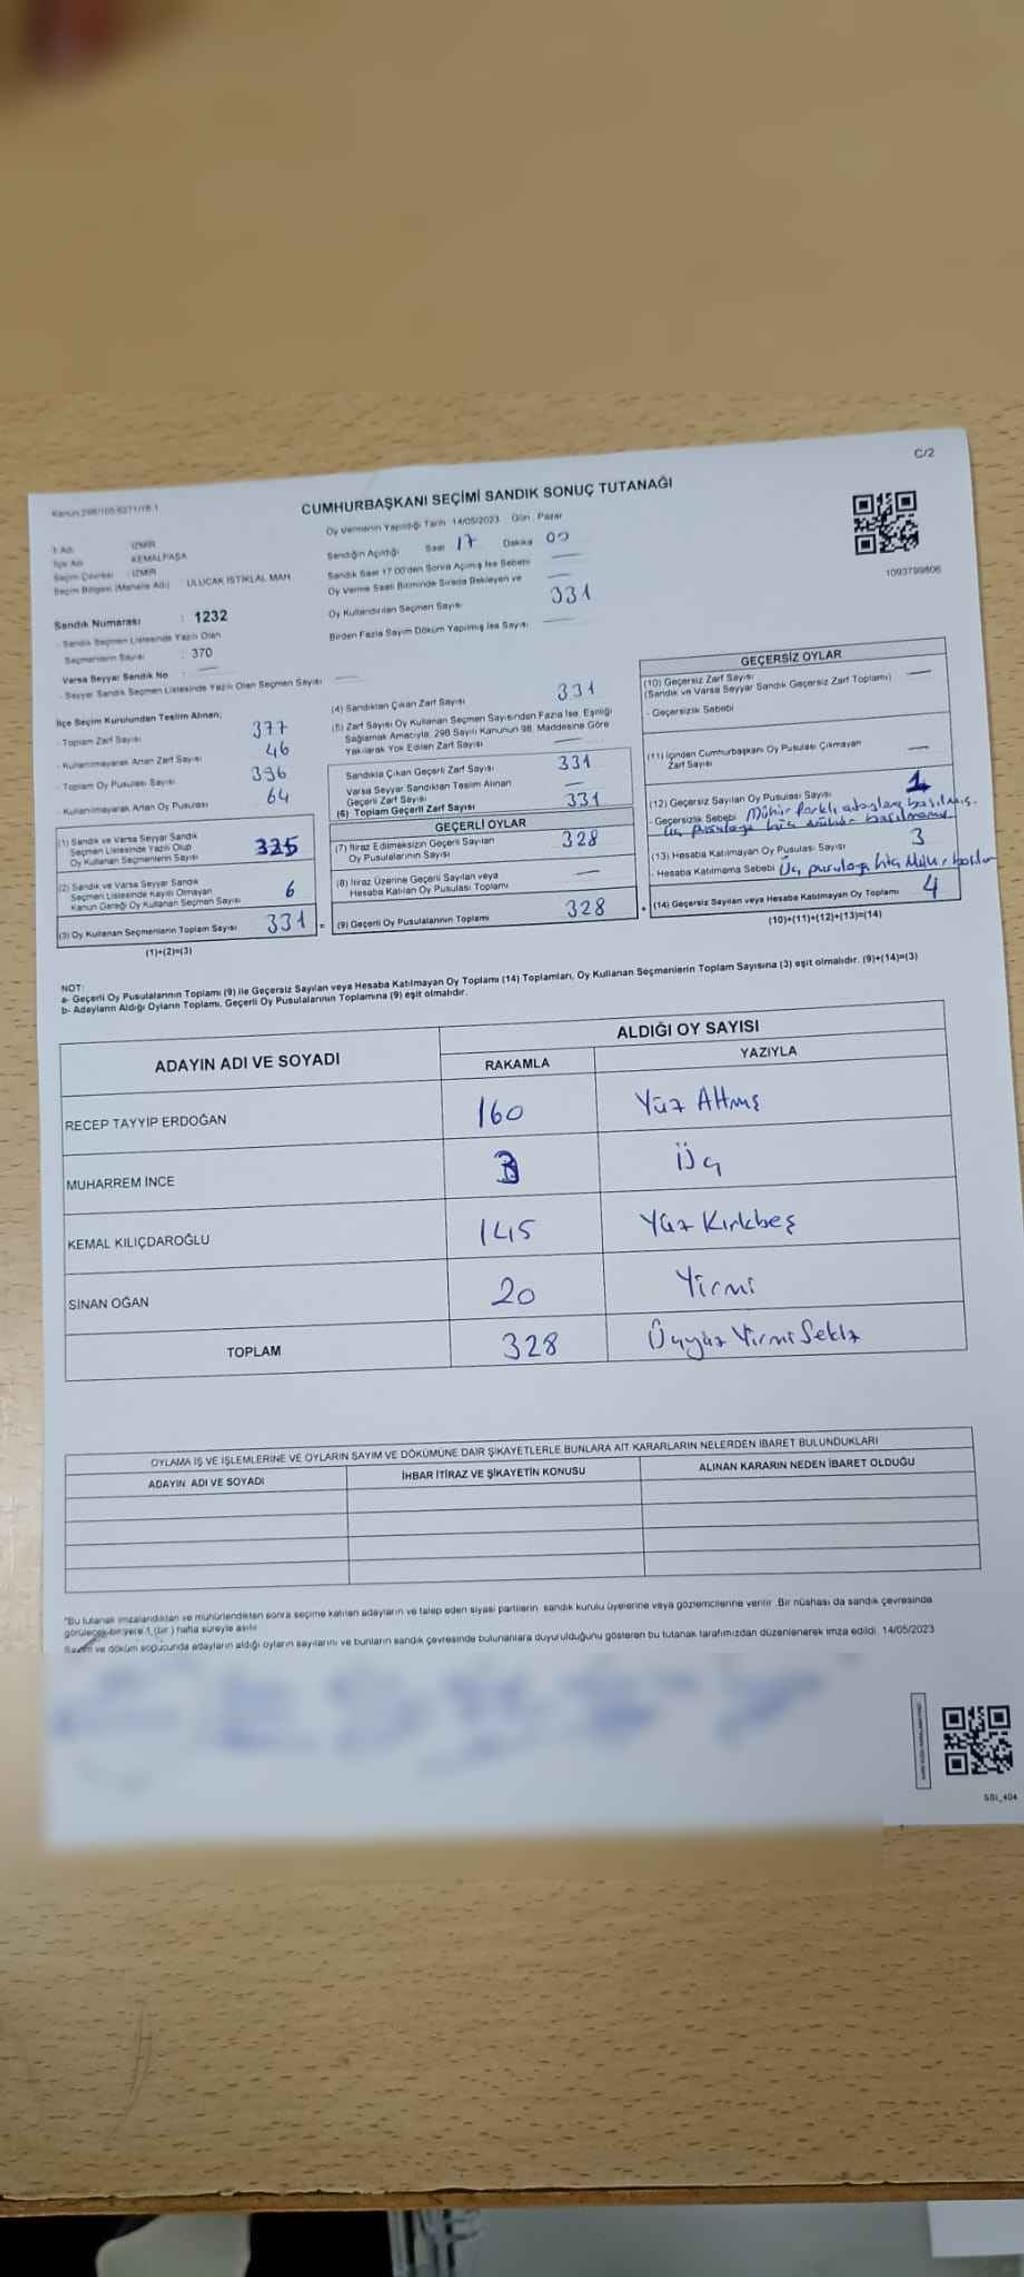 C/2
Kanun 298/105-6271/18-1
CUMHURBAŞKANI SEÇİMİ SANDIK SONUÇ TUTANAĞI
Oy Vermenin Yapıldığı Tarih 14/05/2023 Gün Pazar
İl Adı İZMİR
İlçe Adı KEMALPAŞA
Seçim Çevresi : İZMİR
Seçim Bölgesi (Mahalle Adı) ULUCAK İSTİKLAL MAH.
Sandık Numarası : 1232
- Sandık Seçmen Listesinde Yazılı Olan
Seçmenlerin Sayısı : 370
Varsa Seyyar Sandık No : —
- Seyyar Sandık Seçmen Listesinde Yazılı Olan Seçmen Sayısı —
Sandığın Açıldığı Saat 17 Dakika 00
Sandık Saat 17:00'den Sonra Açılmış İse Sebebi —
Oy Verme Saati Bitiminde Sırada Bekleyen ve —
Oy Kullandırılan Seçmen Sayısı 331
Birden Fazla Sayım Döküm Yapılmış İse Sayısı —
1093799806
İlçe Seçim Kurulundan Teslim Alınan;
- Toplam Zarf Sayısı 377
- Kullanılmayarak Artan Zarf Sayısı 46
- Toplam Oy Pusulası Sayısı 396
- Kullanılmayarak Artan Oy Pusulası 64
(1) Sandık ve Varsa Seyyar Sandık
Seçmen Listesinde Yazılı Olup
Oy Kullanan Seçmenlerin Sayısı 325
(2) Sandık ve Varsa Seyyar Sandık
Seçmen Listesinde Kayıtlı Olmayan
Kanun Gereği Oy Kullanan Seçmen Sayısı 6
(3) Oy Kullanan Seçmenlerin Toplam Sayısı 331 =
(1)+(2)=(3)
(4) Sandıktan Çıkan Zarf Sayısı 331
(5) Zarf Sayısı Oy Kullanan Seçmen Sayısından Fazla İse, Eşitliği
Sağlamak Amacıyla, 298 Sayılı Kanunun 98. Maddesine Göre
Yakılarak Yok Edilen Zarf Sayısı —
Sandıkta Çıkan Geçerli Zarf Sayısı 331
Varsa Seyyar Sandıktan Teslim Alınan
Geçerli Zarf Sayısı —
(6) Toplam Geçerli Zarf Sayısı 331
GEÇERLİ OYLAR
(7) İtiraz Edilmeksizin Geçerli Sayılan
Oy Pusulalarının Sayısı 328
(8) İtiraz Üzerine Geçerli Sayılan veya
Hesaba Katılan Oy Pusulası Toplamı —
(9) Geçerli Oy Pusulalarının Toplamı 328 +
GEÇERSİZ OYLAR
(10) Geçersiz Zarf Sayısı
(Sandık ve Varsa Seyyar Sandık Geçersiz Zarf Toplamı) —
- Geçersizlik Sebebi
(11) İçinden Cumhurbaşkanı Oy Pusulası Çıkmayan
Zarf Sayısı —
(12) Geçersiz Sayılan Oy Pusulası Sayısı 1
- Geçersizlik Sebebi Mühür farklı adaylara basılmış.
Üç pusulaya hiç mühür basılmamış
(13) Hesaba Katılmayan Oy Pusulası Sayısı 3
- Hesaba Katılmama Sebebi Üç pusulaya hiç Mühür
(14) Geçersiz Sayılan veya Hesaba Katılmayan Oy Toplamı 4
(10)+(11)+(12)+(13)=(14)
NOT:
a- Geçerli Oy Pusulalarının Toplamı (9) ile Geçersiz Sayılan veya Hesaba Katılmayan Oy Toplamı (14) Toplamları, Oy Kullanan Seçmenlerin Toplam Sayısına (3) eşit olmalıdır. (9)+(14)=(3)
b- Adayların Aldığı Oyların Toplamı, Geçerli Oy Pusulalarının Toplamına (9) eşit olmalıdır.
ADAYIN ADI VE SOYADI ALDIĞI OY SAYISI
RAKAMLA YAZIYLA
RECEP TAYYİP ERDOĞAN 160 Yüz Altmış
MUHARREM İNCE 3 Üç
KEMAL KILIÇDAROĞLU 145 Yüz Kırkbeş
SİNAN OĞAN 20 Yirmi
TOPLAM 328 Üçyüz Yirmi Sekiz
OYLAMA İŞ VE İŞLEMLERİNE VE OYLARIN SAYIM VE DÖKÜMÜNE DAİR ŞİKAYETLERLE BUNLARA AİT KARARLARIN NELERDEN İBARET BULUNDUKLARI
ADAYIN ADI VE SOYADI İHBAR İTİRAZ VE ŞİKAYETİN KONUSU ALINAN KARARIN NEDEN İBARET OLDUĞU
"Bu tutanak imzalandıktan ve mühürlendikten sonra seçime katılan adayların ve talep eden siyasi partilerin, sandık kurulu üyelerine veya gözlemcilerine verilir. Bir nüshası da sandık çevresinde
görülecek bir yere 1 (bir) hafta süreyle asılır.
Sayım ve döküm sonucunda adayların aldığı oyların sayılarını ve bunların sandık çevresinde bulunanlara duyurulduğunu gösteren bu tutanak tarafımızdan düzenlenerek imza edildi. 14/05/2023
SSI_404